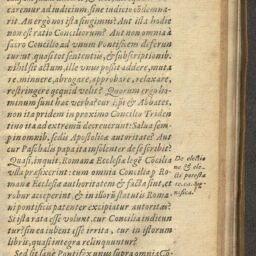 caremur ad iudicium, sine indicto cōdemna-
ri. An ergò nos ista fingimus? Aut illa hodie
non est ratio Conciliorum? Aut non omnia à
sacro Concilio, ad vnum Pontificem deferun
tur: vt quasi tot sententiæ, & subscriptiones
nihil sit actum, ille vnus possit addere, muta
re, minuere, abrogare, approbare, relaxare,
restringere quicquid velit? Quorum ergo ho
minum sunt hæc verba? cur Epi & Abbates,
non ita pridem in proximo Concilio Triden
tino ita ad extremū decreuerunt: Salua sem
per in omnib. sedis Apostolicæ autoritate? aut
cur Paschalis papa ita insolenter de se scribit?
Quasi, inquit, Romanæ Ecclesiæ legē Cōcilia
vlla præfixerint: cum omnia Concilia p Ro-
manæ Ecclesiæ authoritatem & facta sint, et
robur acceperint, & in illorū statutis Roma-
ni pontificis patenter excipiatur autoritas?
Si ista rata esse volunt, cur Concilia indicun
tur? sin ea iubent esse irrita, cur in istorum
libris, quasi integra relinquuntur?
Sed sit sanè Pontifex vnus supra omnia Cō-
De electio
ne & ele-
cti potesta
te. ca. Sig-
nificasti.